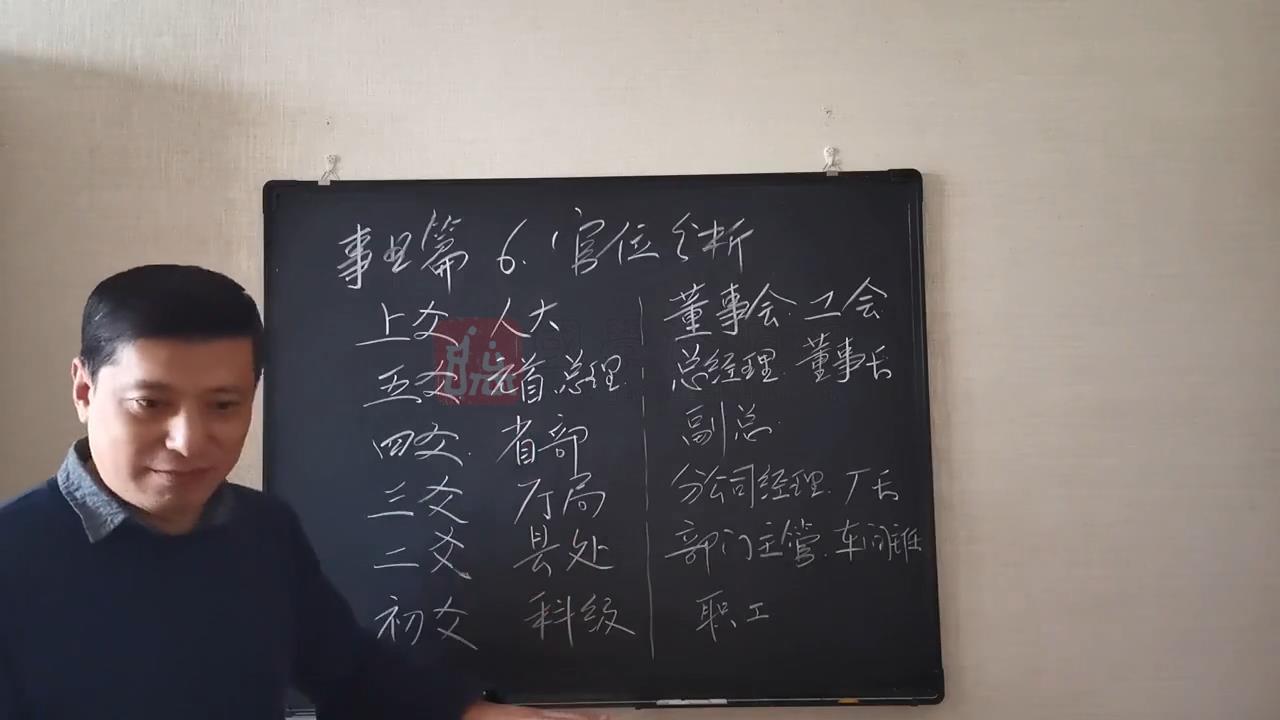 事业篇 6. 官位分析
上爻 人大 董事会. 工会
五爻 元首总理. 总经理. 董事长
四爻. 省部 副总.
三爻 厅局 分公司经理. 厂长
二爻 县处 部门主管. 车间主任
初爻 科级 职工